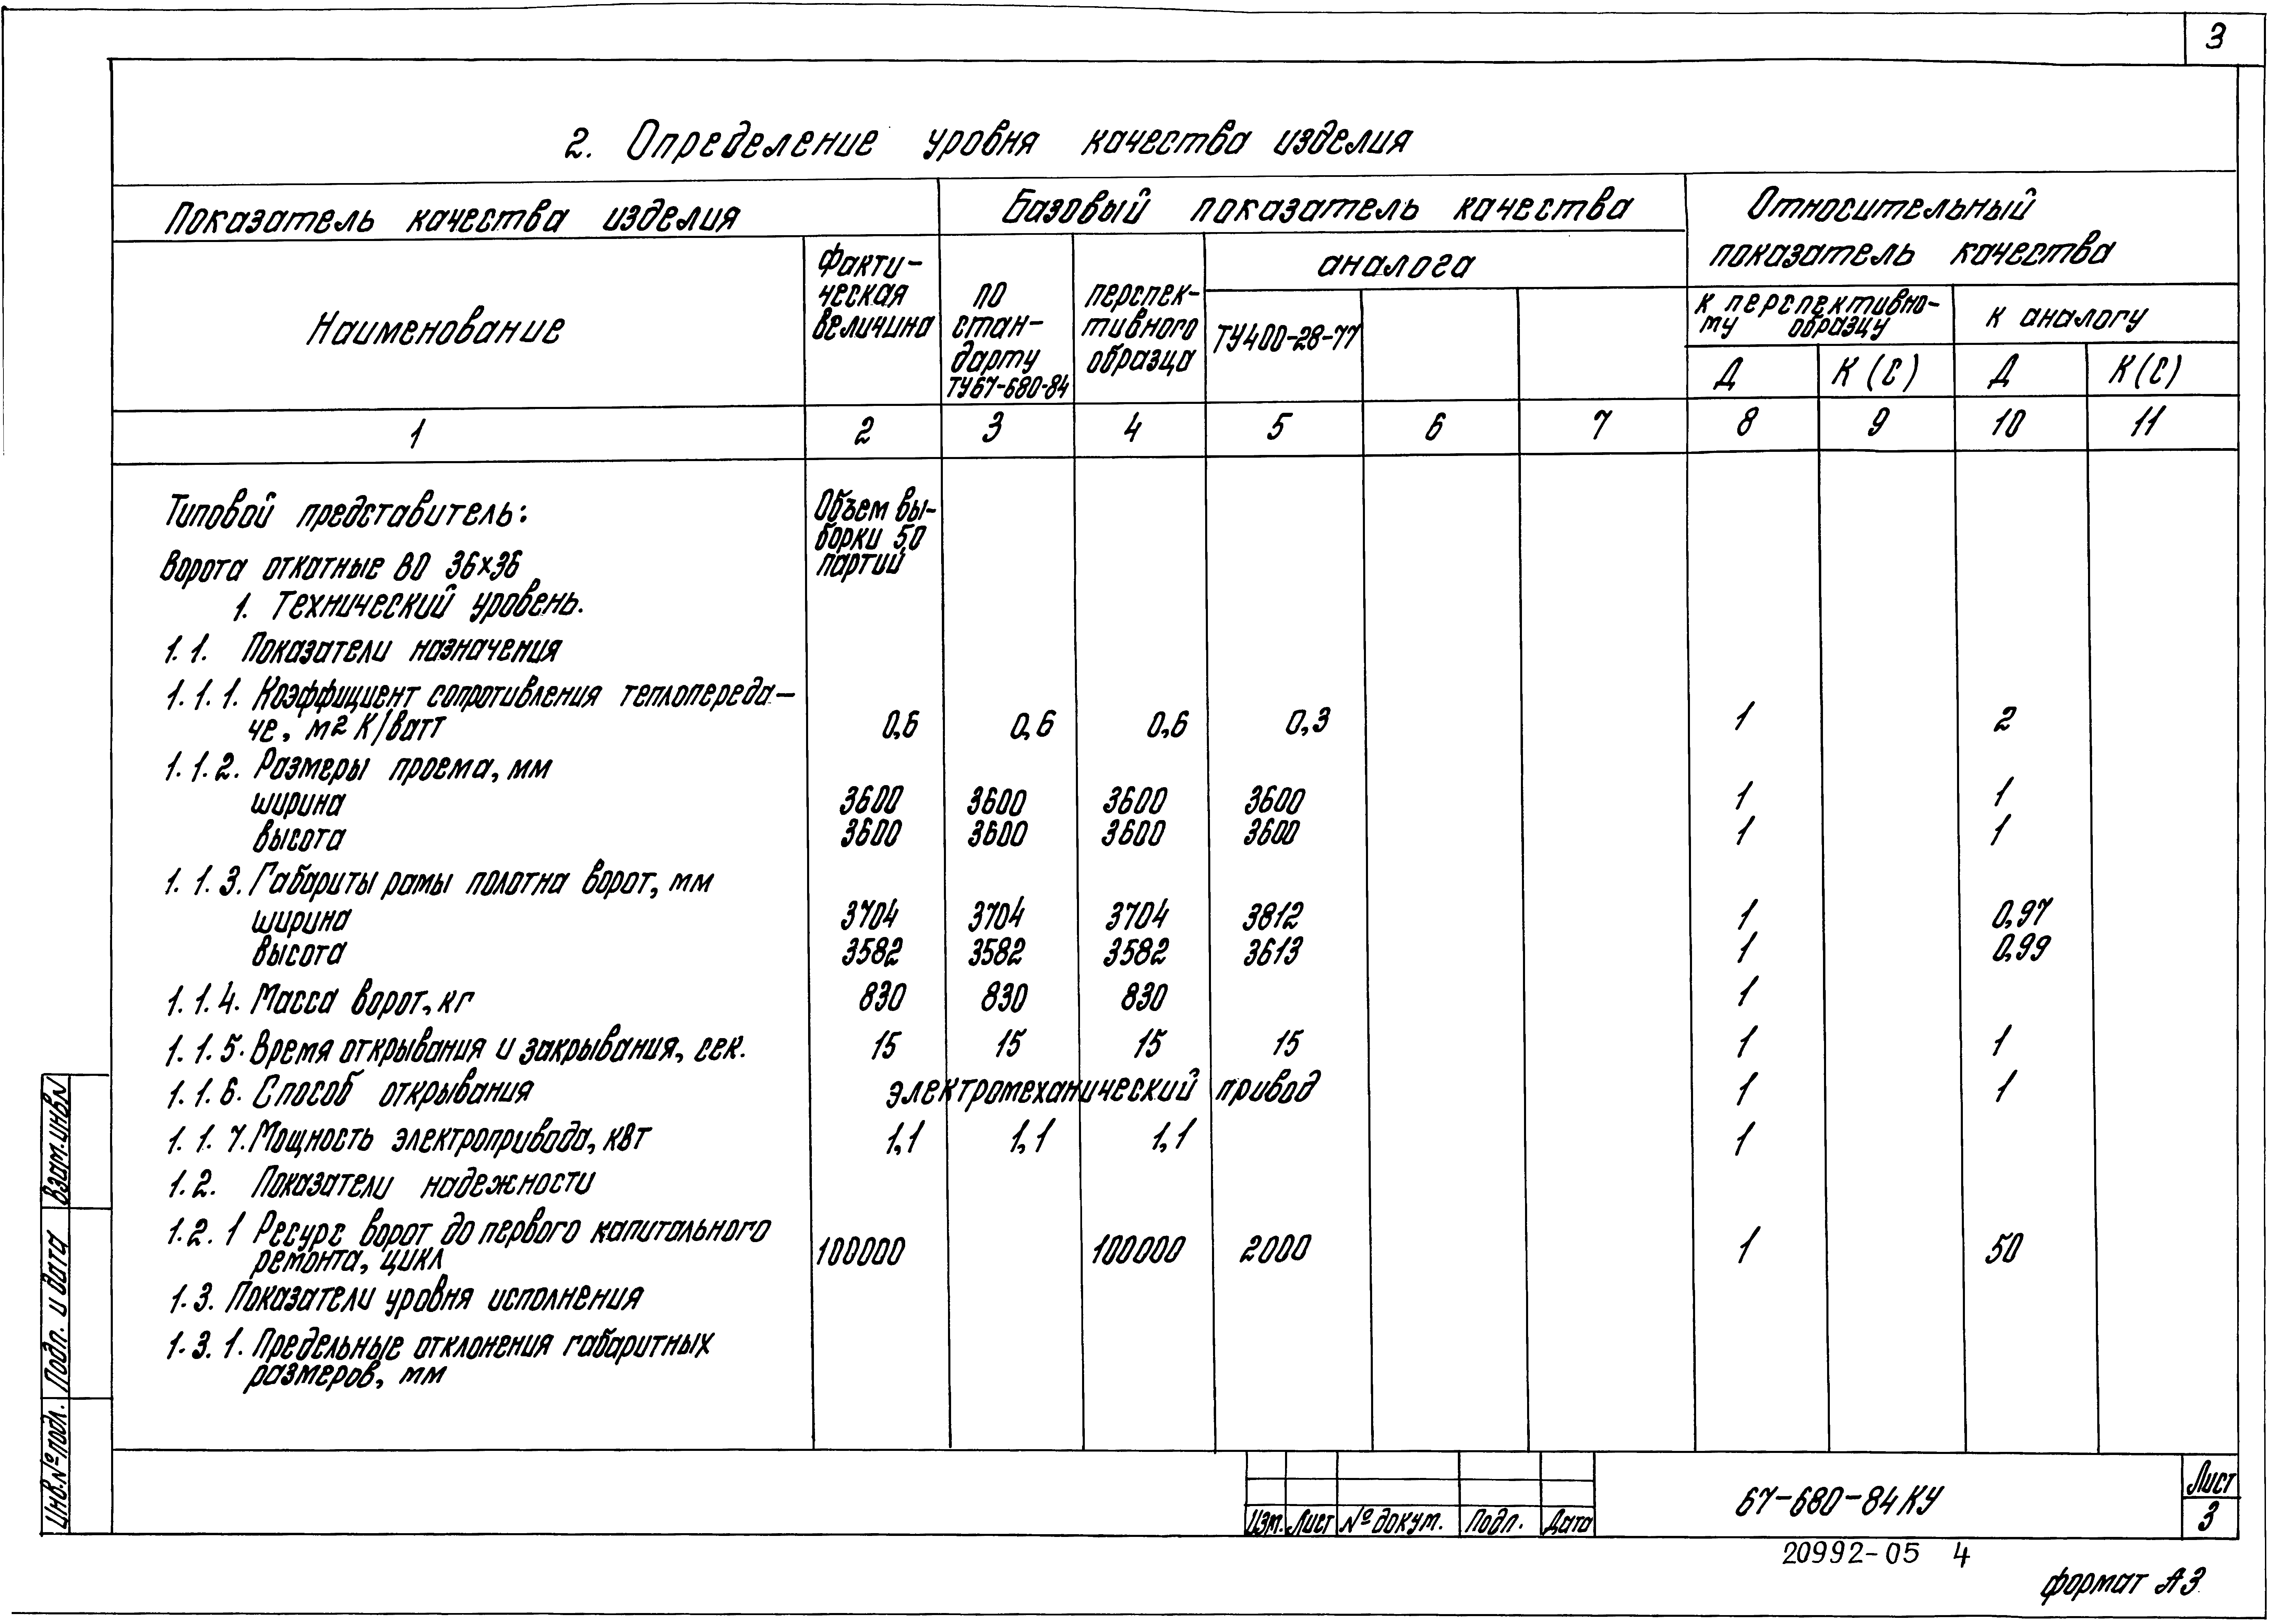 3
2. Определение уровня качества изделия
Показатель качества изделия
Базовый показатель качества
Относительный
показатель качества
Наименование
Факти-
ческая
величина
по
стан-
дарту
ТУ67-680-84
перспек-
тивного
образца
аналога
ТУ400-28-77
к перспективно-
му образцу
к аналогу
Д К(С) Д К(С)
1 2 3 4 5 6 7 8 9 10 11
Типовой представитель:
Объем вы-
борки 50
партий
Ворота откатные ВО 36х36
1. Технический уровень.
1.1. Показатели назначения
1.1.1. Коэффициент сопротивления теплопереда-
че, м2 К/ватт 0,6 0,6 0,6 0,3 1 2
1.1.2. Размеры проема, мм
ширина 3600 3600 3600 3600 1 1
высота 3600 3600 3600 3600 1 1
1.1.3. Габариты рамы полотна ворот, мм
ширина 3704 3704 3704 3812 1 0,97
высота 3582 3582 3582 3613 1 0,99
1.1.4. Масса ворот, кг 830 830 830 1
1.1.5. Время открывания и закрывания, сек. 15 15 15 15 1 1
1.1.6. Способ открывания электромеханический привод 1 1
1.1.7. Мощность электропривода, квт 1,1 1,1 1,1 1
1.2. Показатели надежности
1.2.1 Ресурс ворот до первого капитального
ремонта, цикл 100000 100000 2000 1 50
1.3. Показатели уровня исполнения
1.3.1. Предельные отклонения габаритных
размеров, мм
Взам.инв.№
Подп. и дата
Инв.№подл.
Изм. Лист № докум. Подп. Дата
67-680-84КУ
Лист
3
20992-05 4
формат А3